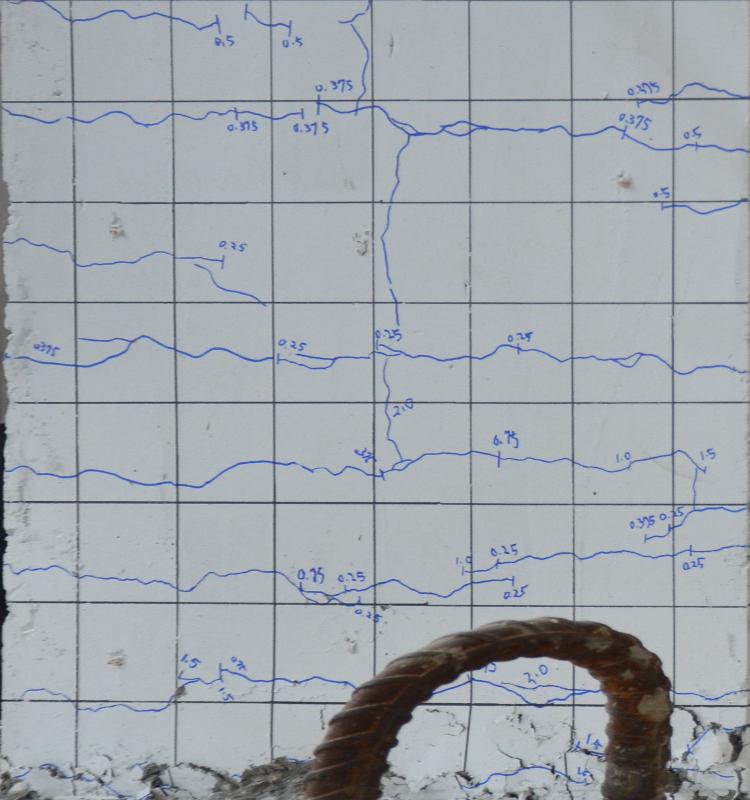 0.5
0.5
0.375
0.375
0.375
0.375
0.375
0.5
0.5
0.25
0.375
0.25
0.25
0.25
2.0
0.75
1.0
1.5
0.375 0.25
0.75
0.25
0.25
1.0
0.25
0.25
0.25
1.5
1.5
2.0